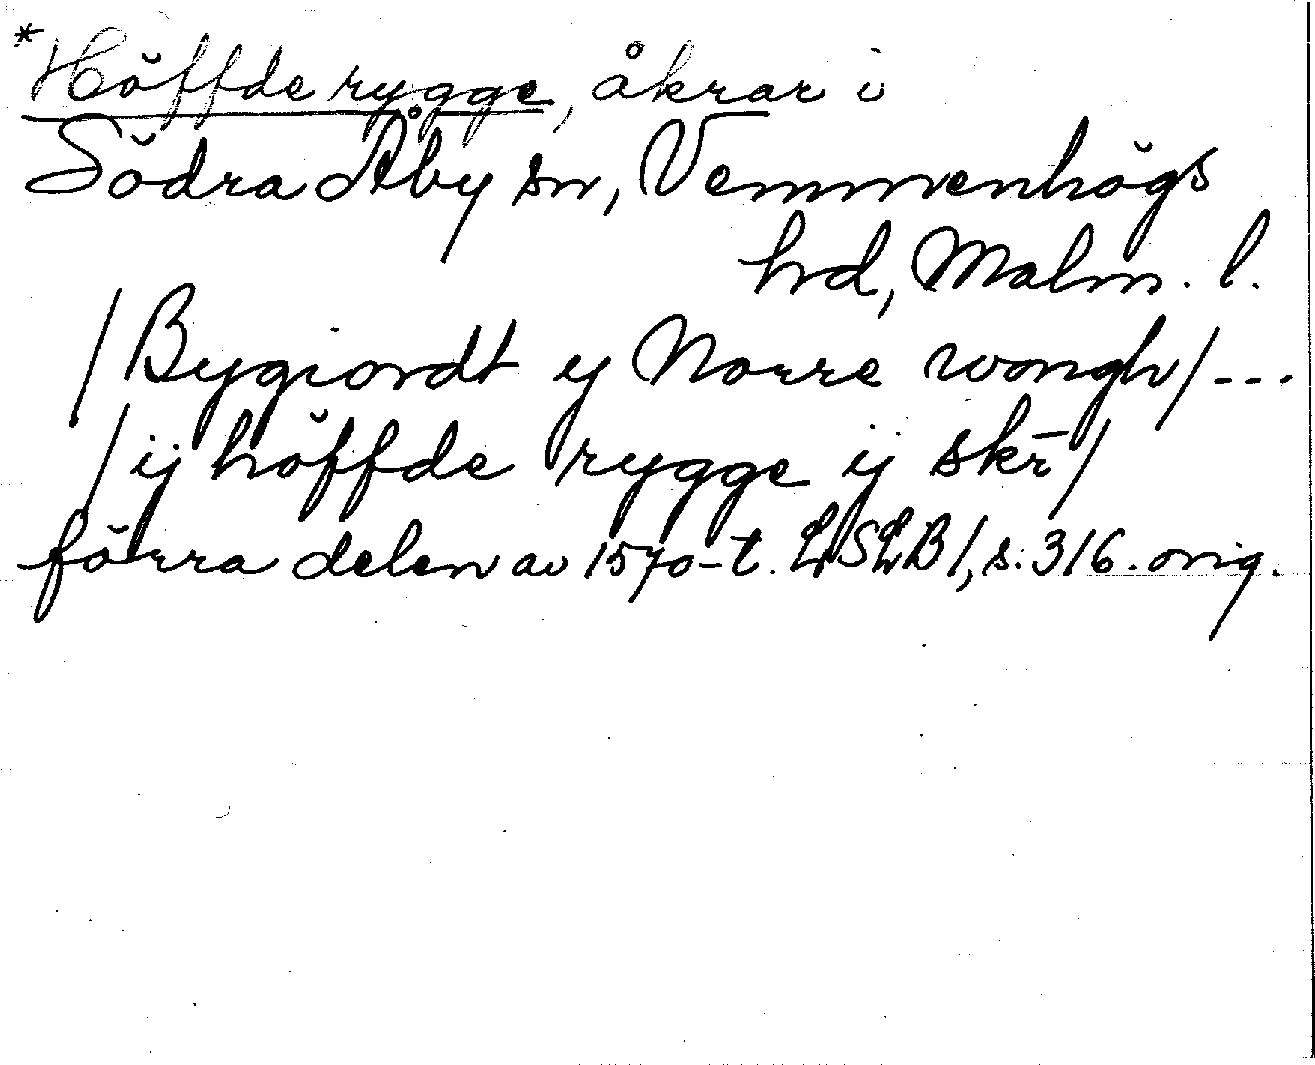 *Höffde rygge, åkrar i
Södra Åby sn, Vemmenhögs
hd, Malm. l.
/Bygiordt y Norre wongh/---
/ij höffde rygge ij skr̄/
förra delen av 1570-t. LSLB1, s. 316. orig.